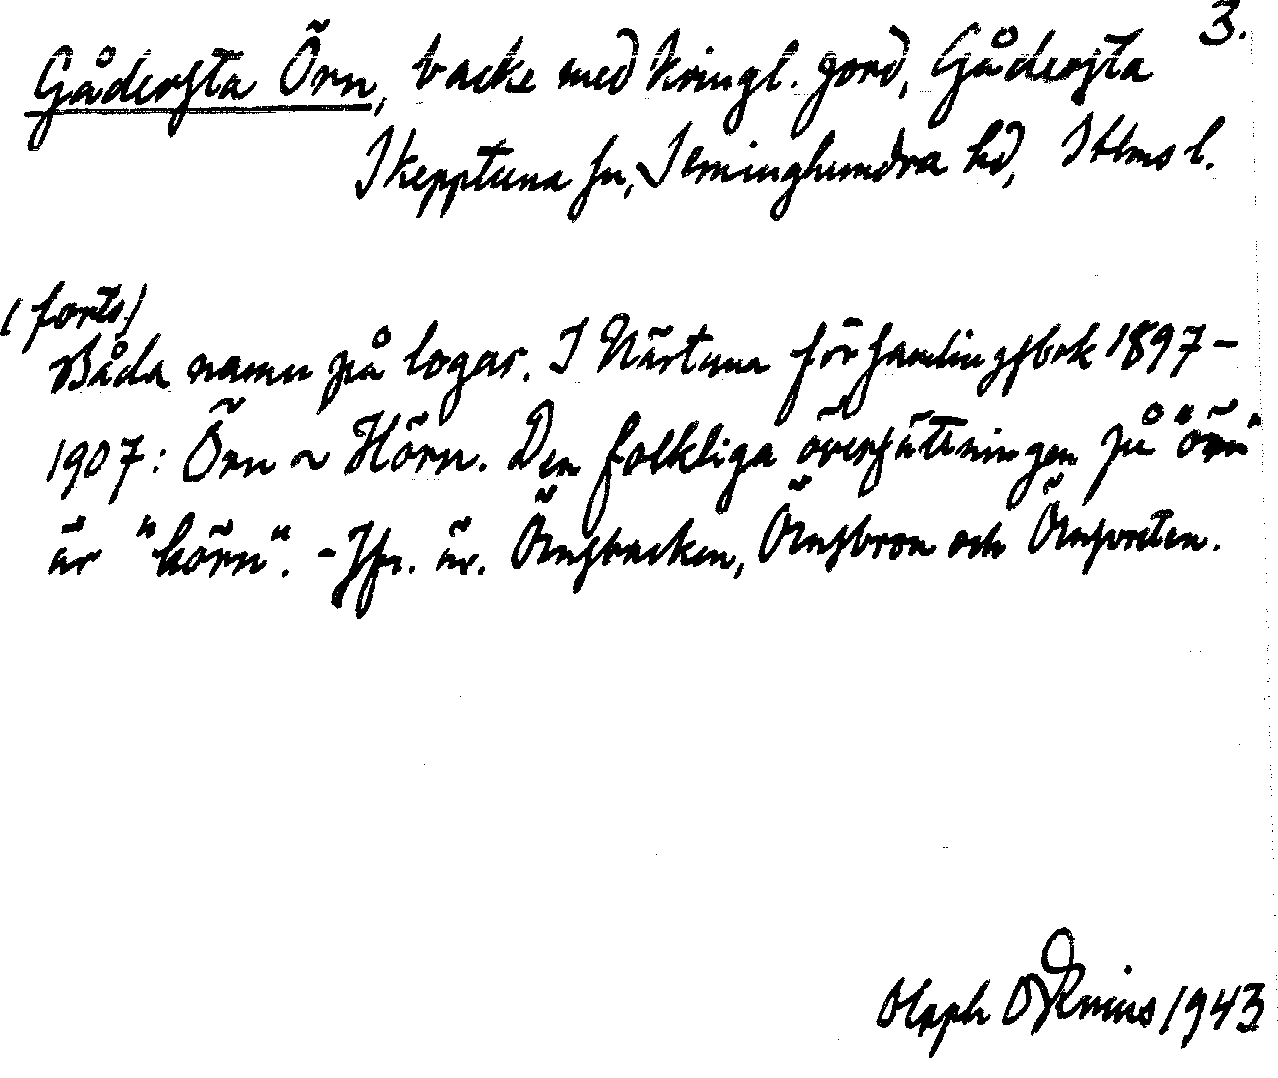 3.
Gådersta Örn, backe med kringl. jord, Gådersta
Skepptuna sn, Seminghundra hd, Sthms l.
(forts.)
Båda namn på lagas. I Närtuna församlingsbok 1897-
1907: Örn ~ Hörn. Den folkliga översättningen på "örn"
är "hörn". - Jfr. äv. Örnsbacken, Örnsbron och
Olaph Odenius 1943